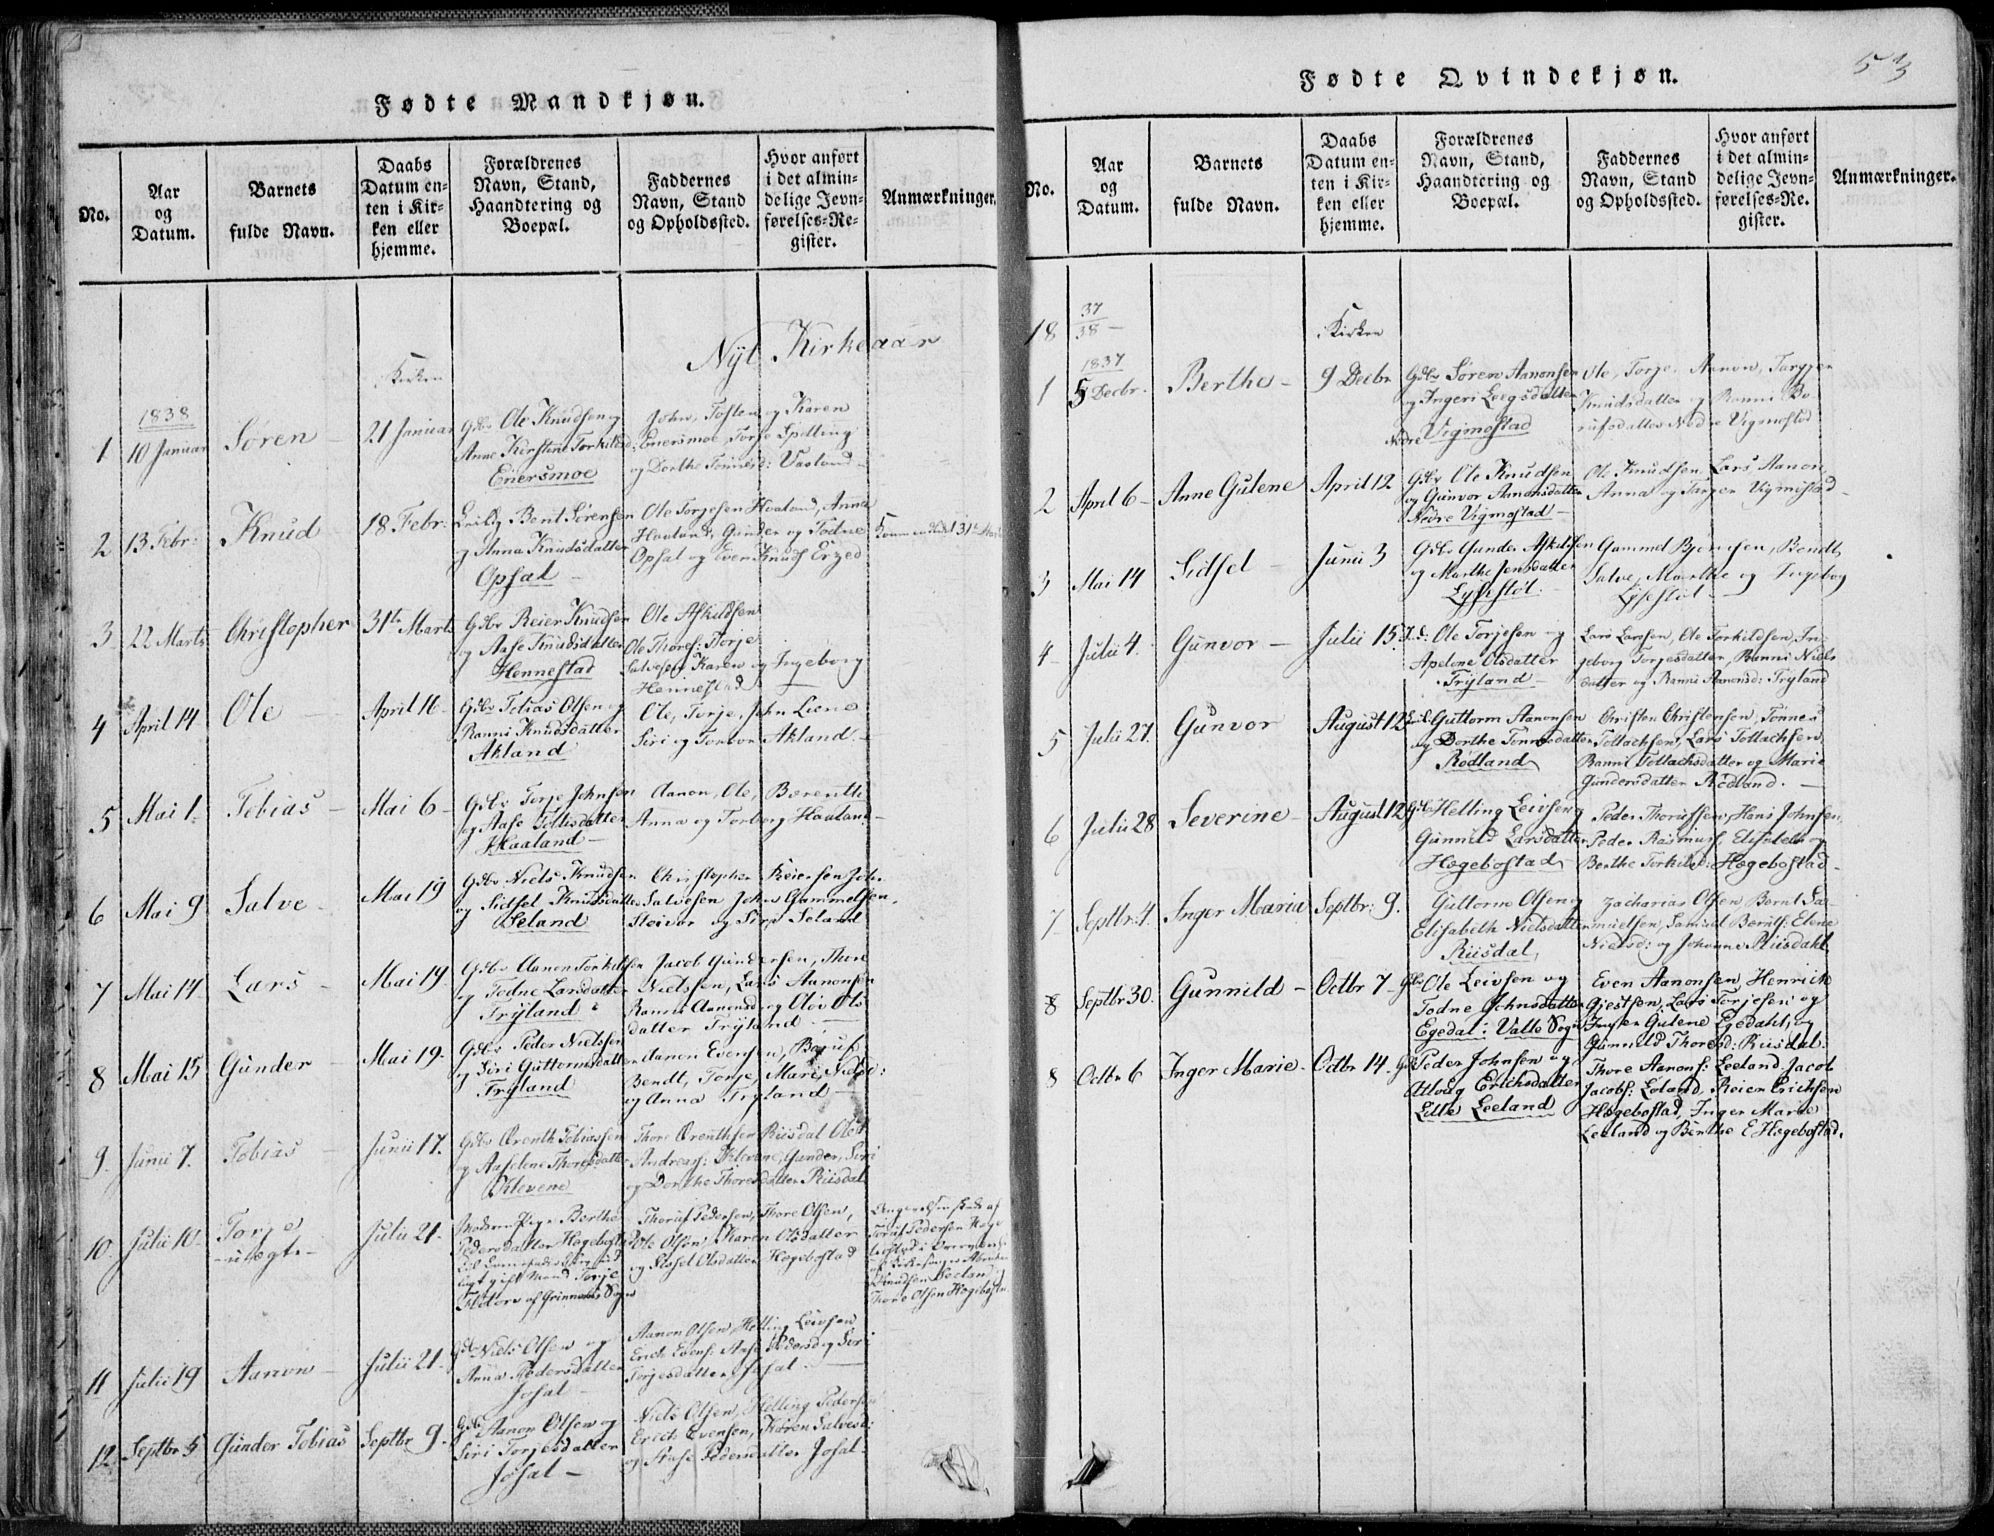 Fødte Mandkjøn.
No.
Aar og Datum.
Barnets fulde Navn.
Daabs Datum enten i Kirken eller hjemme.
Forældrenes Navn, Stand, Haandtering og Boepæl.
Faddernes Navn, Stand og Opholdssted.
Hvor anført i det almindelige Jevnførelses-Register.
Anmærkninger.
Nyt Kirkeaar
Kirken
1838
1
10 Januar
Søren
21 Januar
Gdbr Ole Knudsen og
Anne Kirstine Torkilsd:
Enersmoe
John, Tosten og Karen
Enersmoe, Torje Spilling
og Dorthe Tønnesd: Vaaland
2
13 Febr:
Knud
18 Febr:
Bent Sørensen
og Anna Knudsdatter
Opsal
Ole Torjesen Haaland, Anna
Haaland, Gunder og Todne
Opsal og Even Knuds
3
22 Marts
Christopher
31te Marts
Gdbr Reier Knudsen
og Aase Knudsdatter
Hennestad
Ole Askildsen
Ole Thores: Torje
Salvesen Karen og Ingeborg
Hennestad
4
April 14
Ole
April 16
Gdbr Tobias Olsen og
Ranni Knudsdatter
Akland
Ole, Torje, John Liene
Siri og Torbor Akland
5
Mai 1
Tobias
Mai 6
Gdbr Torje Johnsen
og Aase Tollisdatter
Haaland
Aanon, Ole, Bærenth
Anna og Torborg Haaland
6
Mai 9
Salve
Mai 19
Gdbr Niels Knudsen
og Sidsel Knudsdatter
Seland
Christopher Reiersen John
Salvesen John Gammelsen,
og Siri Seland
7
Mai 14
Lars
Mai 19
Gdbr Aanon Torkildsen
og Todne Larsdatter
Tryland
Jacob Gundersen, Thore
Nielssen, Lars Aanonsen
Ranni Aanonsd og Olov Ols
datter Tryland
8
Mai 15
Gunder
Mai 19
Gdbr Peder Nielssen
og Siri Guttormsdatter
Tryland
Aanon Evensen,
Bendt, Torje, Mari
og Anna Tryland
9
Junii 7
Tobias
Junii 17.
Gdbr Ørenth Tobiassen
og Aaselene Thoresdatter
Klevene
Thore Ørenthsen Riisdal Ole
Andreas: Klevene, Gunder, Siri
og Dorthe Thoresdatter Riisdal
10
Julii 10
Torje
uægte
Julii 21
Moderen Pige Berthe
Pedersdatter Hegebostad
gift Mand Torje
Thoruf Pedersen, Thore Olsen,
Ole Olsen, Karen Olsdatter
og Sissel Olsdatter Hægebostad
Thore Olsen Hægebostad
11
Julii 19
Aanon
Julii 21
Gdbr Niels Olsen og
Anna Pedersdatter
Josal
Aanon Olsen, Helling Leivsen
Erich Evens: Aase Pedersd og Siri
Torjesdatter Josal
12
Septbr 5
Gunder Tobias
Septbr 9
Gdbr Aanon Olsen og
Siri Torjesdatter
Josal
Niels Olsen, Helling Pedersen
Erich Evensen, Karen Salvesd:
og Aase Pedersdatter Josal
Fødte Qvindekjøn.
53
No.
Aar og Datum.
Barnets fulde Navn.
Daabs Datum enten i Kirken eller hjemme.
Forældrenes Navn, Stand, Haandtering og Boepæl.
Faddernes Navn, Stand og Opholdssted.
Hvor anført i det almindelige Jevnførelses-Register.
Anmærkninger.
18 37/38
i Kirken
1837
1
5 Decbr.
Berthe
9 Decbr
Gdbr Søren Aanonsen
og Ingeri Leegsdatter
Nedre Vigmostad
Ole, Torje, Aanon, Targjer
Knudsdatter og Ranni Bo
rufsdatter Nedre Vigmostad
2
April 6
Anne Gulene
April 12
Gdbr Ole Knudsen
og Gunvor Amonsdatter
Nedre Vigmostad
Ole Knudsen Lars Aanon,
Anna og Targer Vigmostad
3
Mai 14
Sidsel
Junii 3
Gdbr Gunder Askildsen
og Marthe Jensdatter
Lyssestøl
Gammel Bjørnsen, Bendt,
Salve, Marthe og Ingebog
Lyssestøl
4
Julii 4.
Gunvor
Julii 15
Ole Torjesen og
Apelone Olsdatter
Tryland
Lars Larssen, Ole Torkildsen, In
geborg Torjesdatter, Ranni Niels
datter og Ranni Aanonsd: Tryland
5
Julii 27.
Gunvor
August 12
Guttorm Aanonsen
og Dorthe Tønnesdatter
Rødland
Christen Christensen, Tønnes
Tollachsen, Lars Tollachsen,
Ranni Tollachsdatter og Marie
Gundersdatter Rødland.
6
Julii 28
Severine
August 12
Gdbr Helling Leivsen og
Gunnild Larsdatter
Hægebostad
Peder Thorufsen, Hans Johnsen,
Peder Rasmus: Elisabeth og
Berthe Torkilsd: Hægebostad
7
Septbr: 4.
Inger Maria
Septbr: 9.
Guttorm Olsen og
Elisabeth Nielsdatter
Riisdal
Zacharias Olsen, Bernt Sa
muelsen, Samuel Bernts: Elene
Nielsd: og Johanne Riisdahl
8
Septbr 30.
Gunnild
Octbr 7
Gdbr Ole Leivsen og
Todne Johnsdatter
Egedal: Valle Sogn
Even Aanonsen, Henrich
Gjestsen, Lars Torjesen og
Inger Gulene Egedahl, og
Gunnild Thoresd: Riisdal.
8
Octbr 6
Inger Marie
Octbr 14
Gdbr Peder Johnsen og
Atloug Erichsdatter
Lille Leeland
Thore Aanons: Leeland Jacob
Jacobs: Leland, Reier Erichsen
Hægebostad, Inger Marie
Leeland og Berthe E Hægebostad.